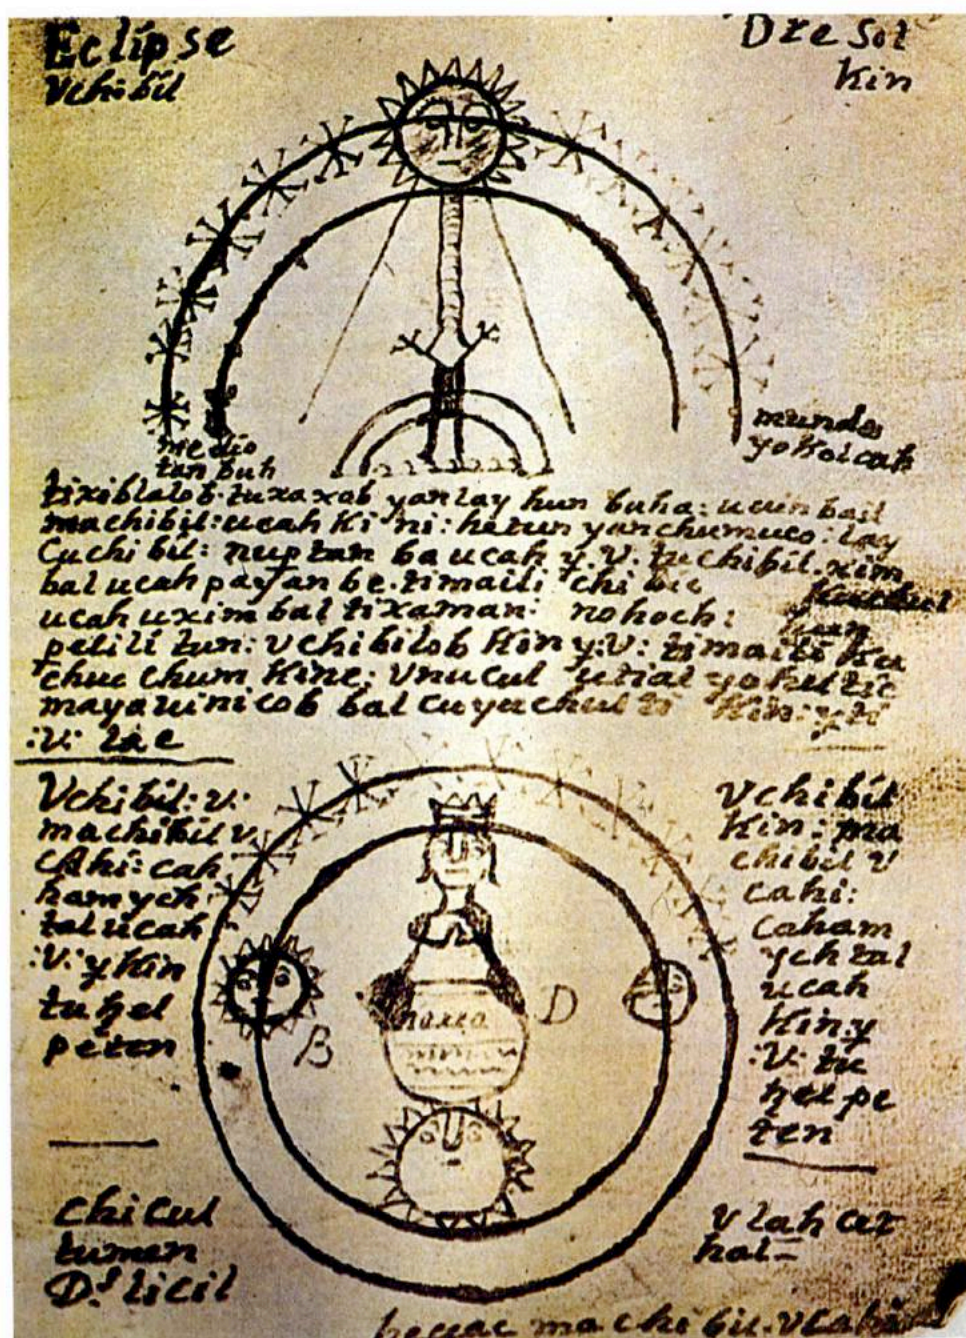 Eclipse
Dre Sol
Vchibil
Kin
medio
tan buh
mundo
yokolcab
tixiblalob tuxaxob yanlay hun buha: ucuin bail
machibil: ucah Ki ni: hetun yanchumuco: lay
Cuchi bil: nuptan ba ucah y. V. tu chibil. xim
bal ucah payan be. timaili chi bil
ucah uximbal tixaman: nohoch:
petili tun: Vchibilob Kin y: V: timaili Ku
chuc chum Kine: Vnucul utial yohelt
maya uinicob bal cuyuchul ti Kin: yti
:V: lae
Vchibil: v:
machibil v
cahi: cah
ham ych
tal ucah
:V: y Kin
tu hel
peten
hauo
B
D
Vchibil
Kin: ma
chibil v
cahi:
caham
ych tal
ucah
Kin y
:V: tu
hel pe
ten
chicul
tumen
Ds. licil
v lah cet
hal=
machibil. Vcahi